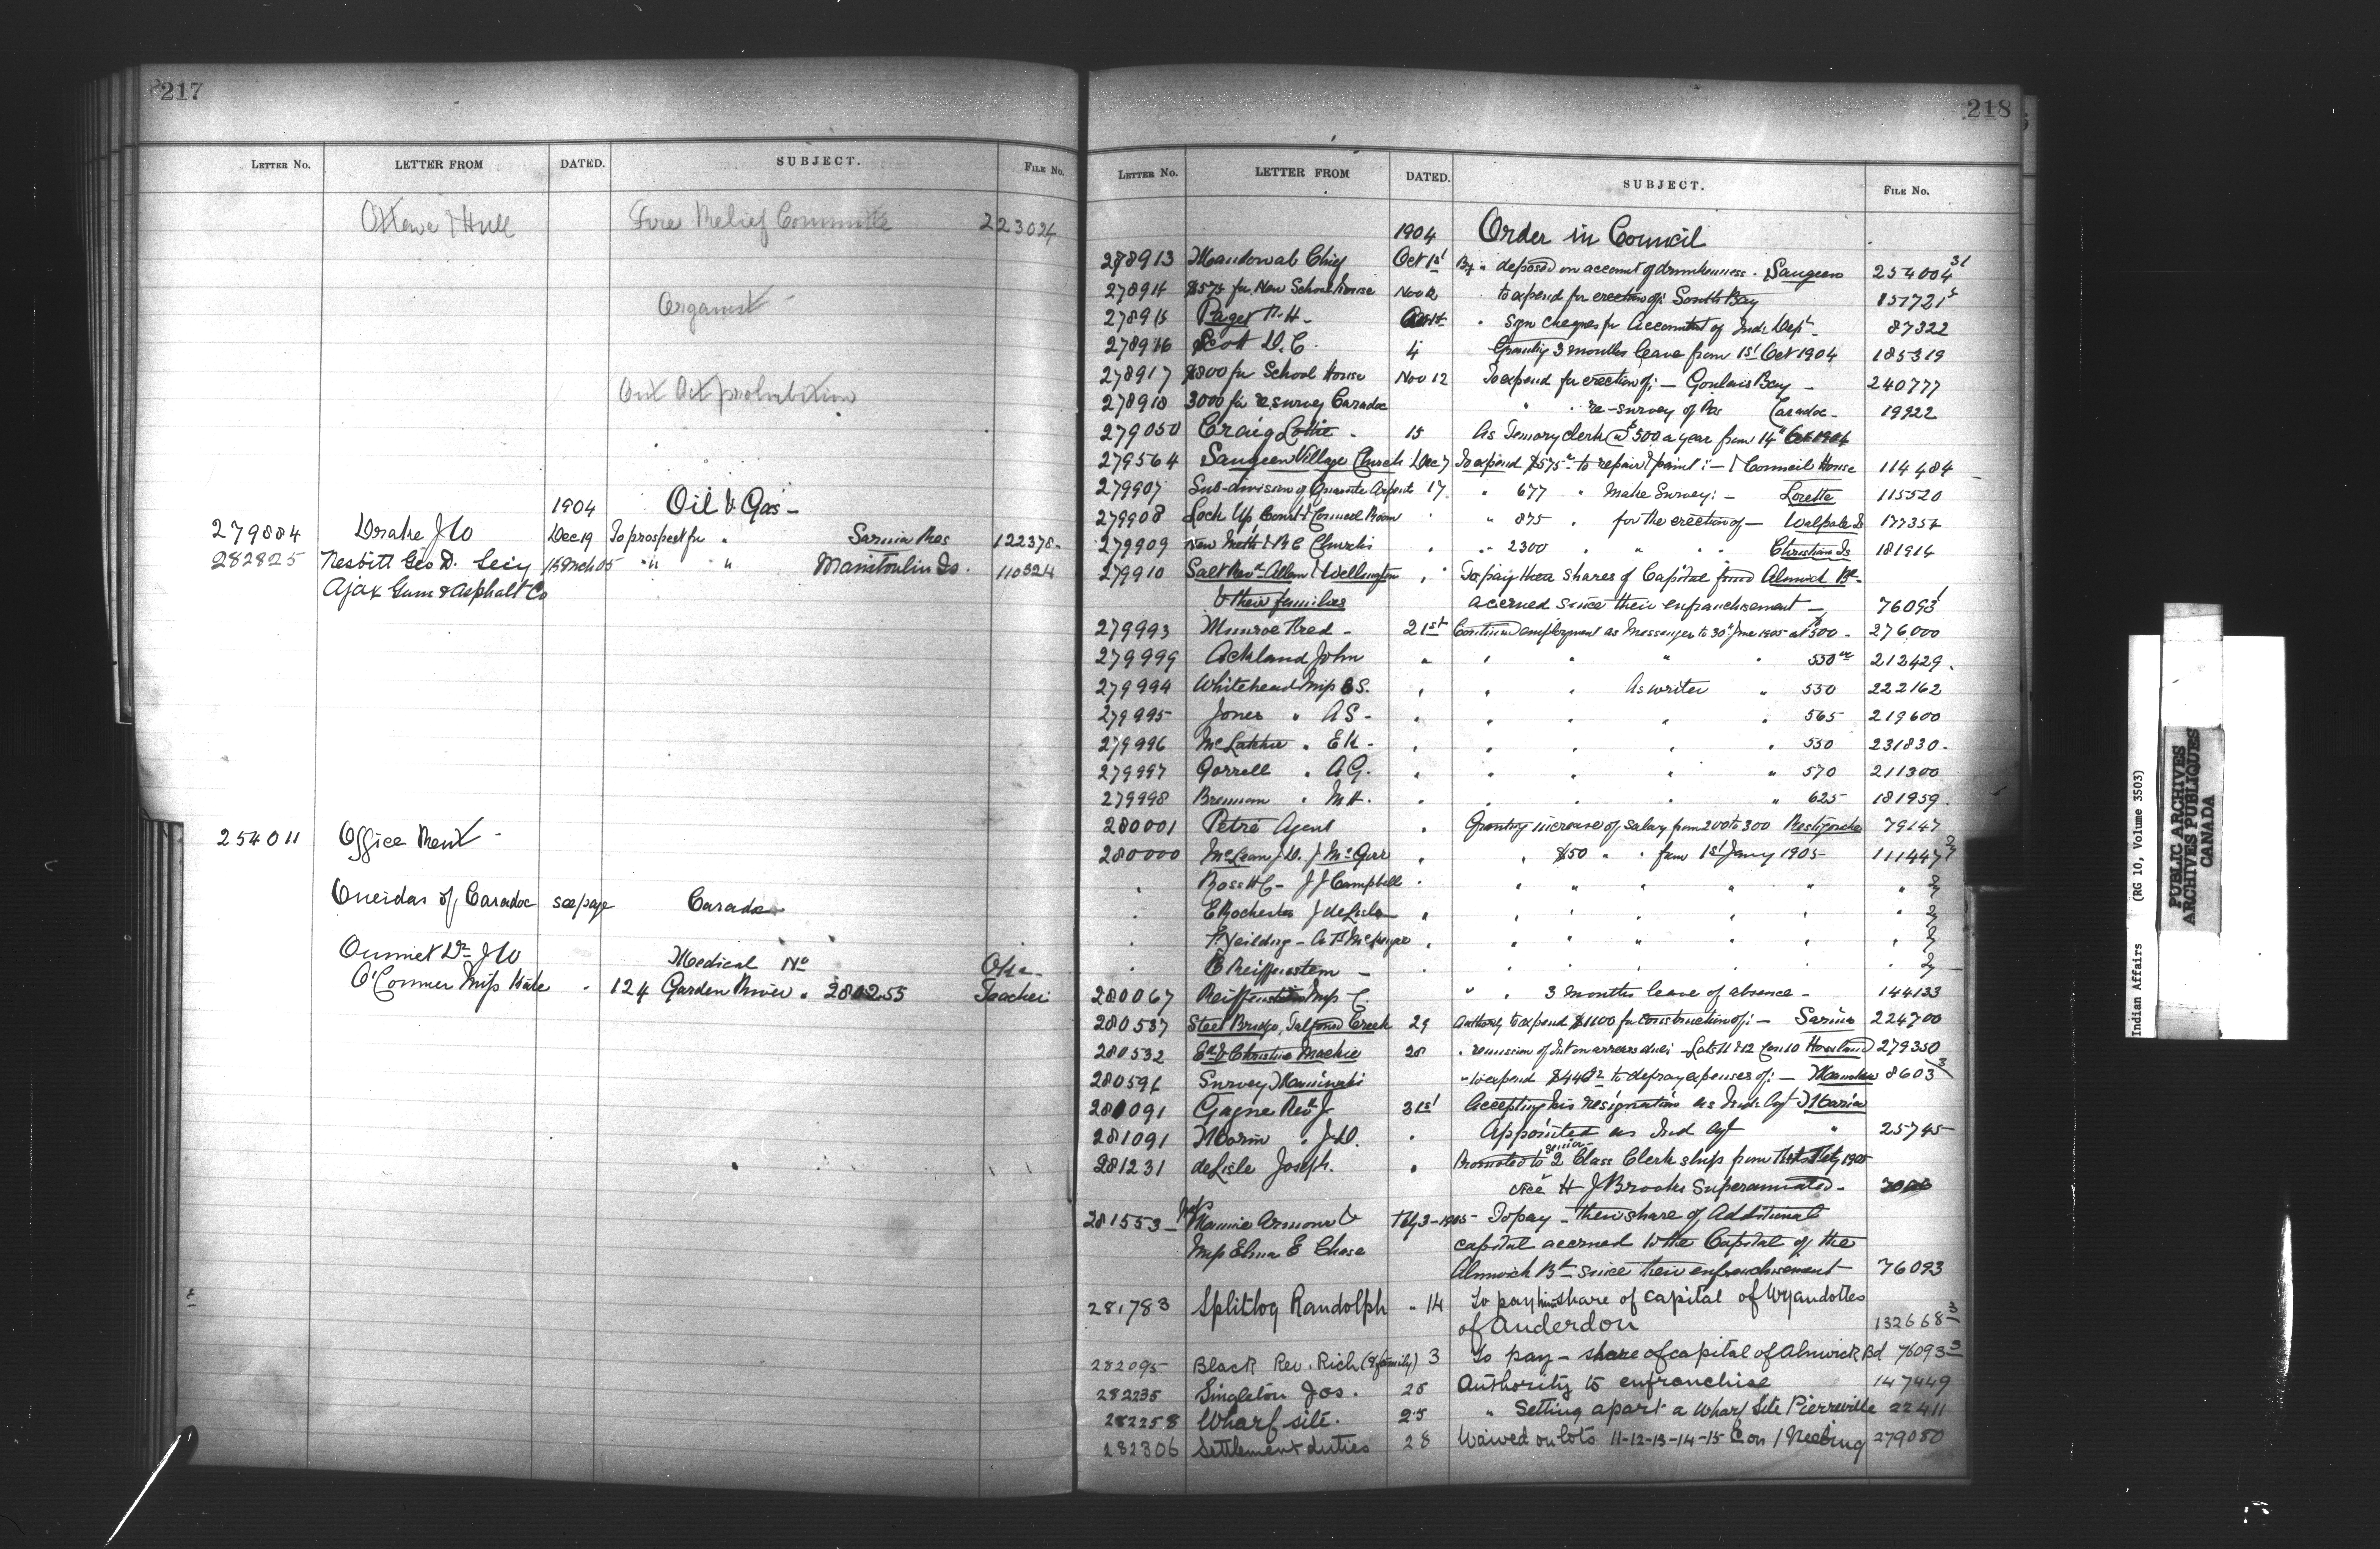 217
LETTER No. LETTER FROM DATED. SUBJECT. FILE No.
Ottawa & Hull Fire Relief Committe 223024
Organist -
Out Act prohibition
1904 Oil & Gas -
279884 Drake J W Dec 19 To prospect for " Sarnia Res 122378.
282825 Nesbitt Geo D. Secy 16 Mch 05 " " " Manitoulin Is. 110524
Ajax Gum & Asphalt Co
254011 Office Rent -
Oneidas of Caradoc see page Caradoc
Ouimet Dr J W Medical No Oka -
O'Connor Miss Kate " 124 Garden River " 280255 Teacher
218
LETTER No. LETTER FROM DATED. SUBJECT. FILE No.
1904 Order in Council
278913 Mandowab Chief Oct 1st By " deposed on account of drunkenness . Saugeen 254004 31
278914 $575 for New School house Nov 12 to expend for erection of: South Bay 151721 5
278915 Paget F. H - " sign cheques for Accountant of Ind: Dept - 87322
278916 Scott D. C. 4 Granting 3 months leave from 1st Oct 1904 185319
278917 $800 for School House Nov 12 To expend for erection of: - Goulais Bay - 240777
278918 3000 for re survey Caradoc " " re-survey of Res Caradoc - 19922
279050 Craig Lottie - 15 As Temorary clerk @ $500 a year from 14" Oct 1904
279564 Saugeen Village Church Dec 7 To expend $575 to repair & paint: - & Council House 114484
279907 Sub-division of Quarante Arpents 17. " 677 " Make Survey: - Lorette 115520
279908 Lock Up Court & Council Room " " 875 " for the erection of - Walpole Is 177354
279909 New Meth & R C Churches " " 2300 " " " Christian Is 181914
279910 Salt Revd Allen & Wellington " To pay their shares of Capital fund Alnwick Bd.
& their families accrued since their enfranchisement - 76093 1
279993 Munroe Fred - 21st Continued employment as Messenger to 30" June 1905 at $500 - 276000
279999 Ackland John " " " " " 550 212429.
279994 Whitehead Miss B S. " " " As writer " 550 222162
279995 Jones " A S - " " " " " 565 219600
279996 McLatchie " E K - " " " " " 550 231830.
279997 Gorrell " A G. " " " " " 570 211300
279998 Brennan " M H. " " " " " 625 181959.
280001 Petré Agent " Granting increase of salary from 200 to 300 Restigouche 79147
280000 McLean J. D. J McGirr " " $50 " " from 1st Jany 1905 - 111447 2/7
" Ross H C - J J Campbell " " " " " " " 2/7
" E Rochester J deLisle " " " " " " " 2/7
" F Yeilding - A F McKenzie " " " " " " " 2/7
" E Reiffenstein - " " " " " " 2/7
280067 Reiffenstein Miss C. " " 3 months leave of absence - 144133
280537 Steel Bridge, Talfourd Creek 29 Authority to expend $1100 for construction of: - Sarnia 224700
280532 Ed & Christina Mackie 28 " remission of Int on arrears due: - Lots 11 & 12 Con 10 Howland 279350
280596 Survey Maniwaki " to expend $446 to defray expenses of: - Maniwaki 8603 3
281091 Gagne Revd J 31st Accepting his resignation as Ind: Agt Maria
281091 Morin " J D. " Appointed as Ind Agt " 25745
281231 deLisle Joseph. " Promoted to senior 2 Class Clerk ship from 1905
vice H J Brooks Superannuated -
281553 - Mrs Mamie Armour & Feby 3 - 1905 - To pay - their share of Additional
Miss Elma E Chase capital accrued to the Capital of the
Alnwick Bd since their enfranchisement 76093
281783 Splitlog Randolph " 14 To pay him share of capital of Wyandottes
of Anderdon 132668 3
282095 Black Rev. Rich (& family) 3 To pay - share of capital of Alnwick Bd 76093 3
282235 Singleton Jos. 25 Authority to enfranchise 147449
282258 Wharf site. 25 " Setting apart a Wharf Site Pierreville 22411
282306 Settlement duties 28 Waived on lots 11-12-13-14-15 Con 1 Neebing 279080
Indian Affairs (RG 10, Volume 3503)
PUBLIC ARCHIVES
ARCHIVES PUBLIQUES
CANADA